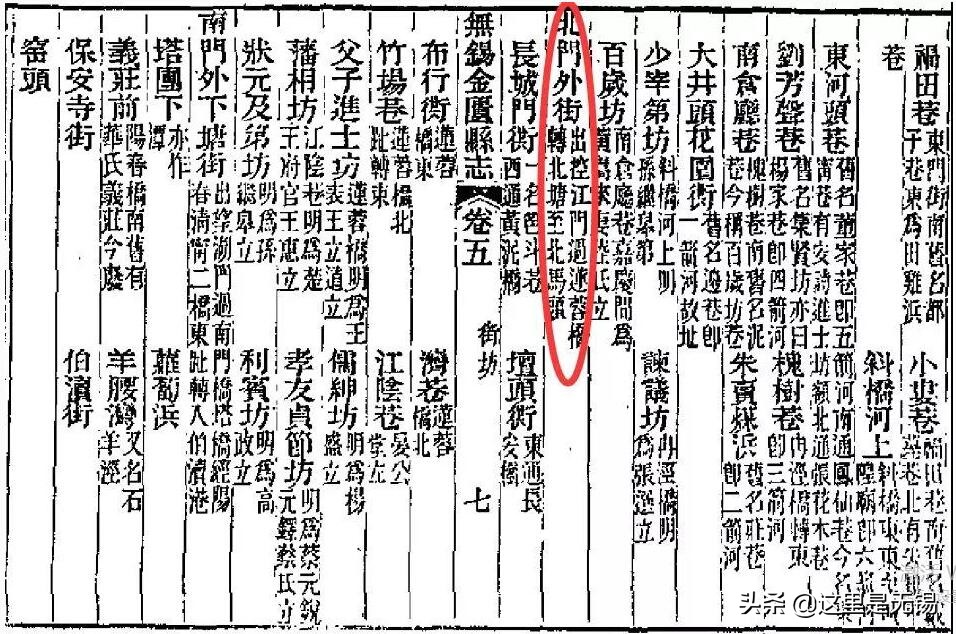 福田巷 東門街南舊名 于巷東為田雞浜 小婁巷 福田巷南舊名
巷 斜橋河上 斜橋東 隍廟即六箭河
東河頭巷 舊名董家巷即五箭河南通鳳仙巷今名 甯巷有安 進士坊額北通張花木巷
劉芳聲巷 舊名集賢坊亦曰楊家巷即四箭河 槐樹巷 冉涇橋轉東即三箭河
南倉廳巷 槐樹巷南舊名泥巷今稱百歲坊巷 朱賣糕浜 舊名莊巷即二箭河
大井頭花園衖 舊名邊巷即一箭河故址
少宰第坊 斜橋河上明孫繼皋第 諫議坊 冉涇橋明為張選立
百歲坊 南倉廳巷嘉慶間為 妻 氏立
北門外街 出控江門過蓮蓉橋轉北塘至北馬頭
長城門衖 一名巴斗巷西通黃泥橋 壇頭衖 東通長安橋
無錫金匱縣志 卷五 街坊 七
布行衖 蓮蓉橋東 濟巷 蓮蓉橋北
竹場巷 蓮蓉橋北趾轉東 江陰巷 晏公堂左
父子進士坊 蓮蓉橋明為王表王道立 儒紳坊 明為楊盛立
藩相坊 江陰巷明為楚王府官王惠立 孝友貞節坊 明為蔡元銳元鐸蔡氏立
狀元及第坊 明為孫繼皋立 利賓坊 明為高政立
南門外下塘街 出望湖門過南門橋塔橋經陽春清甯二橋東趾轉入伯瀆港
塔團下 亦作潭 蘿蔔浜
義莊前 陽春橋南舊有華氏義莊今廢 羊腰灣 又名石羊涇
保安寺街 伯瀆街
窑頭
头条 @这里是无锡